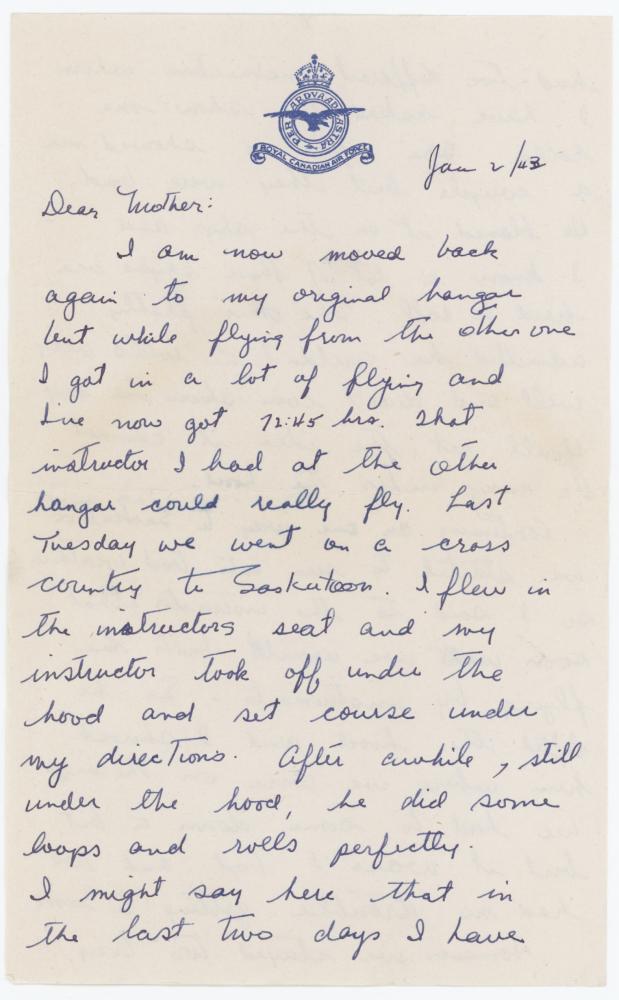 PER ARDVA AD ASTRA
ROYAL CANADIAN AIR FORCE
Jan 2/43
Dear Mother:
I am now moved back
again to my original hangar
but while flying from the other one
I got in a lot of flying and
I've now got 72:45 hrs. That
instructor I had at the other
hangar could really fly. Last
Tuesday we went on a cross
country to Saskatoon. I flew in
the instructors seat and my
instructor took off under the
hood and set course under
my directions. After awhile, still
under the hood, he did some
loops and rolls perfectly.
I might say here that in
the last two days I have